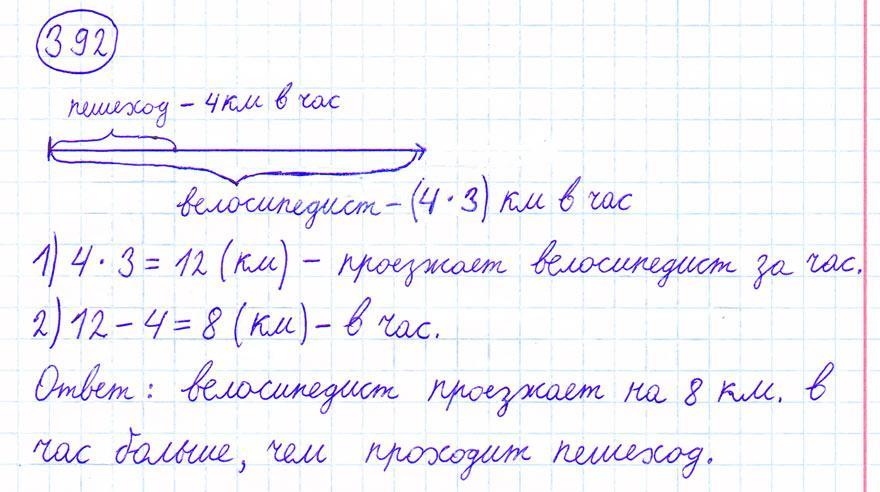 392
пешеход – 4 км в час
велосипедист – (4 · 3) км в час
1) 4 · 3 = 12 (км) – проезжает велосипедист за час.
2) 12 – 4 = 8 (км) – в час.
Ответ: велосипедист проезжает на 8 км. в
час больше, чем проходит пешеход.